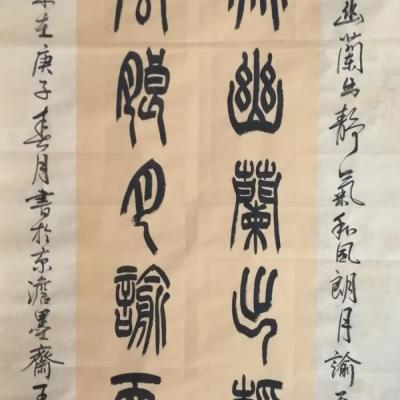 幽蘭出靜氣和風朗月諭
幽蘭出靜
風朗月諭
在庚子春月書於京澹墨齋王